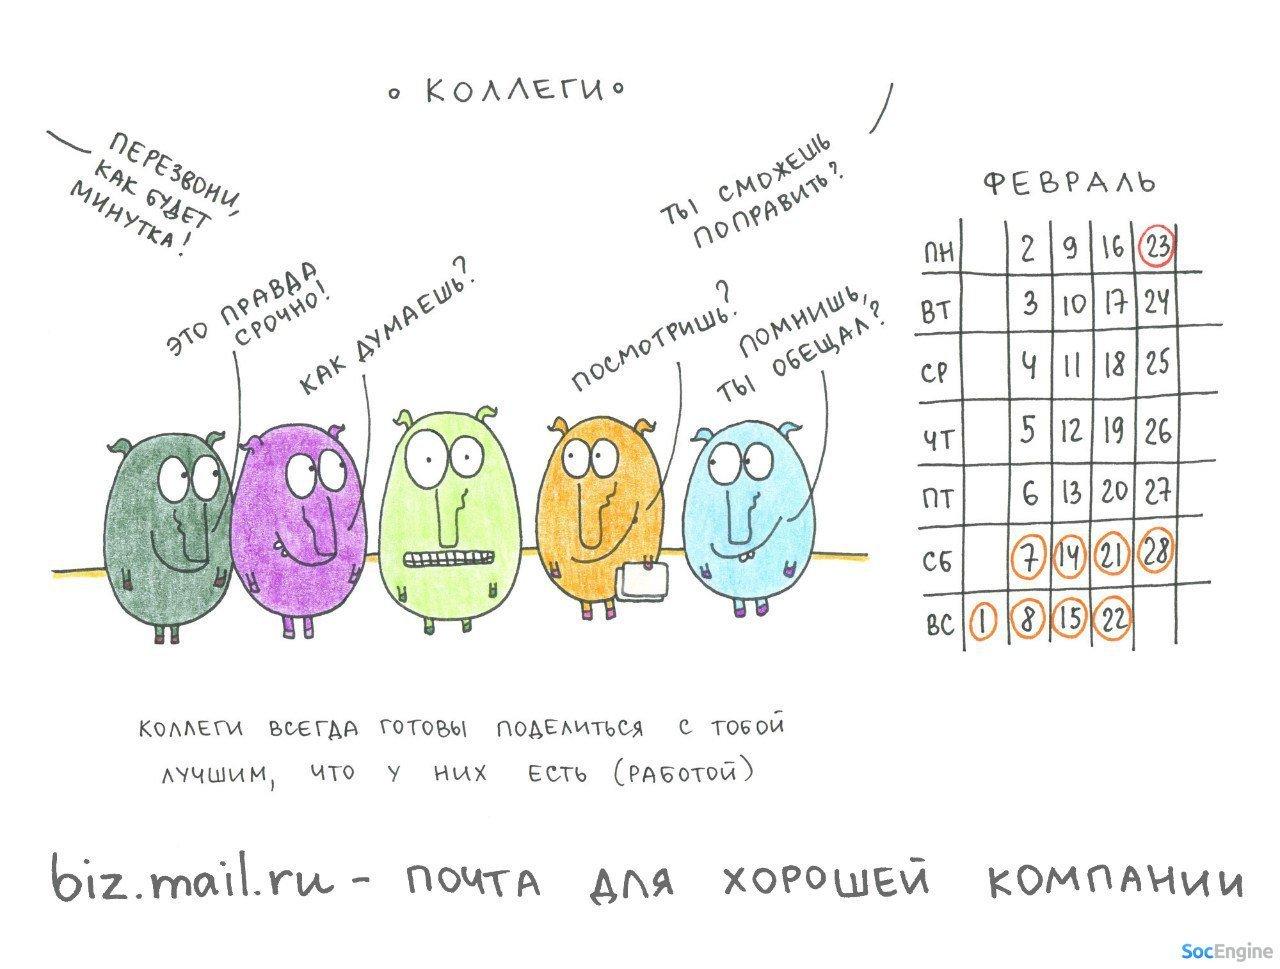 • КОЛЛЕГИ •
ПЕРЕЗВОНИ,
КАК БУДЕТ
МИНУТКА!
ЭТО ПРАВДА
СРОЧНО!
КАК ДУМАЕШЬ?
ПОСМОТРИШЬ?
ТЫ СМОЖЕШЬ
ПОПРАВИТЬ?
ПОМНИШЬ,
ТЫ ОБЕЩАЛ?
ФЕВРАЛЬ
ПН 2 9 16 23
ВТ 3 10 17 24
СР 4 11 18 25
ЧТ 5 12 19 26
ПТ 6 13 20 27
СБ 7 14 21 28
ВС 1 8 15 22
КОЛЛЕГИ ВСЕГДА ГОТОВЫ ПОДЕЛИТЬСЯ С ТОБОЙ
ЛУЧШИМ, ЧТО У НИХ ЕСТЬ (РАБОТОЙ)
biz.mail.ru - ПОЧТА ДЛЯ ХОРОШЕЙ КОМПАНИИ
SocEngine